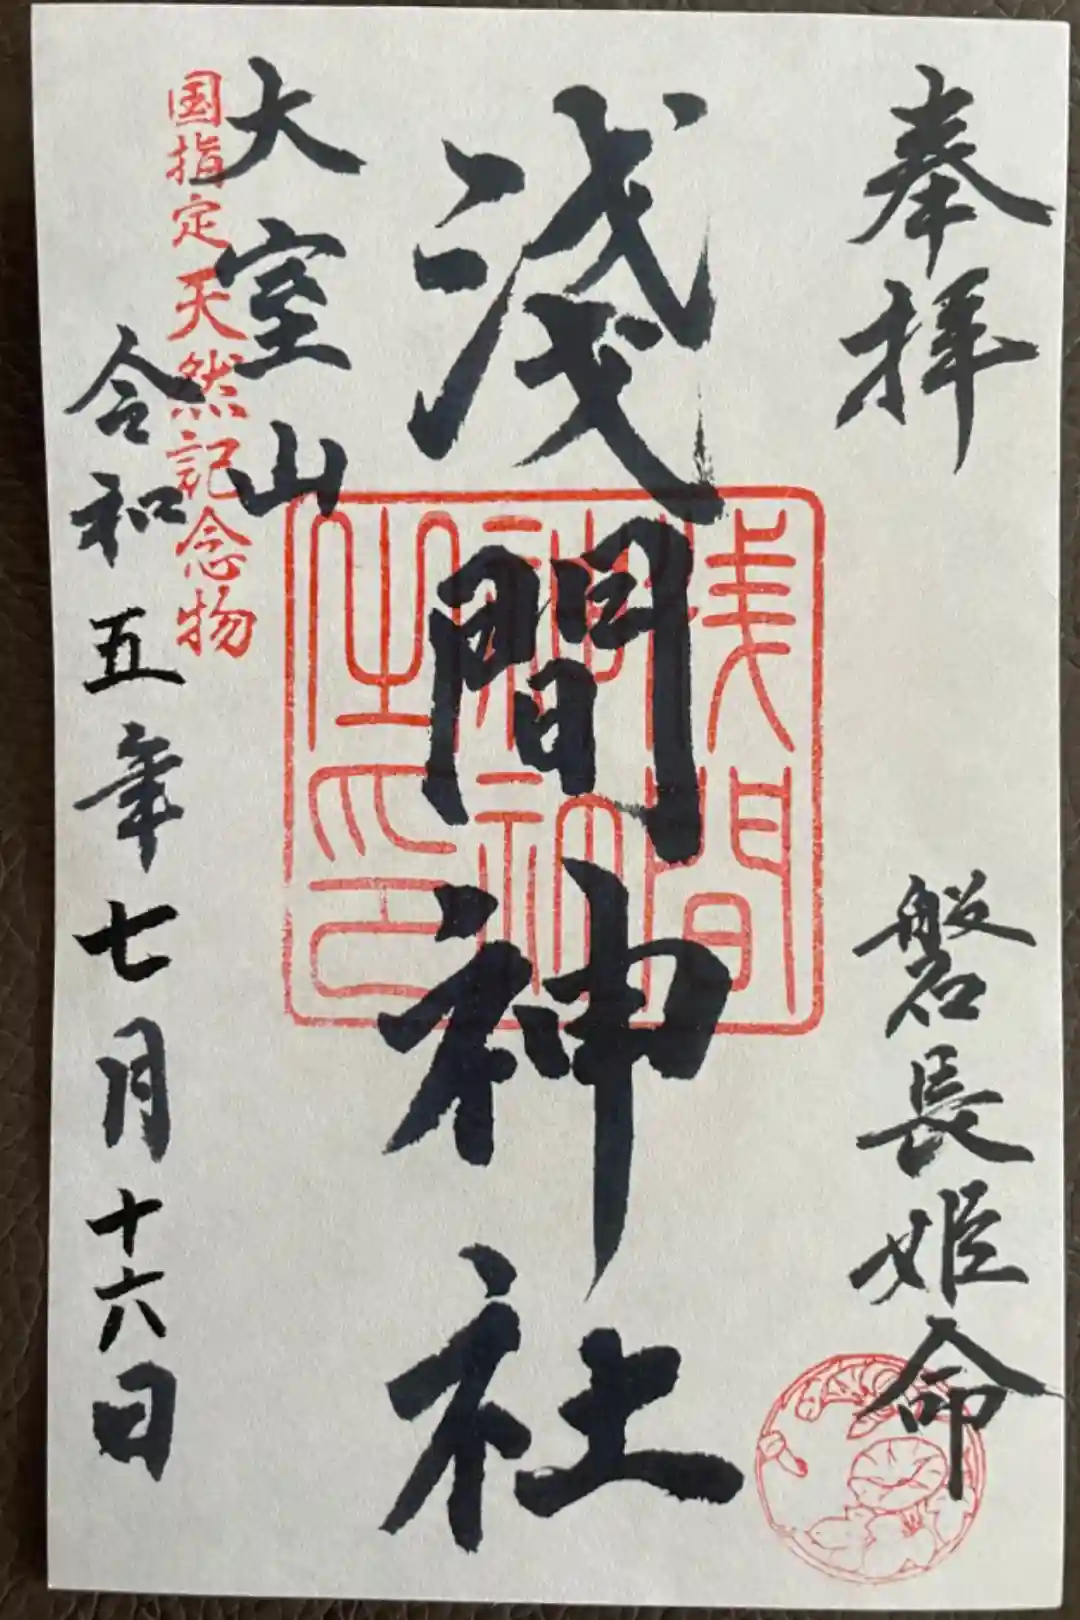 奉拝
磐長姫命
淺間神社
浅間神社之印
大室山
国指定天然記念物
令和五年七月十六日